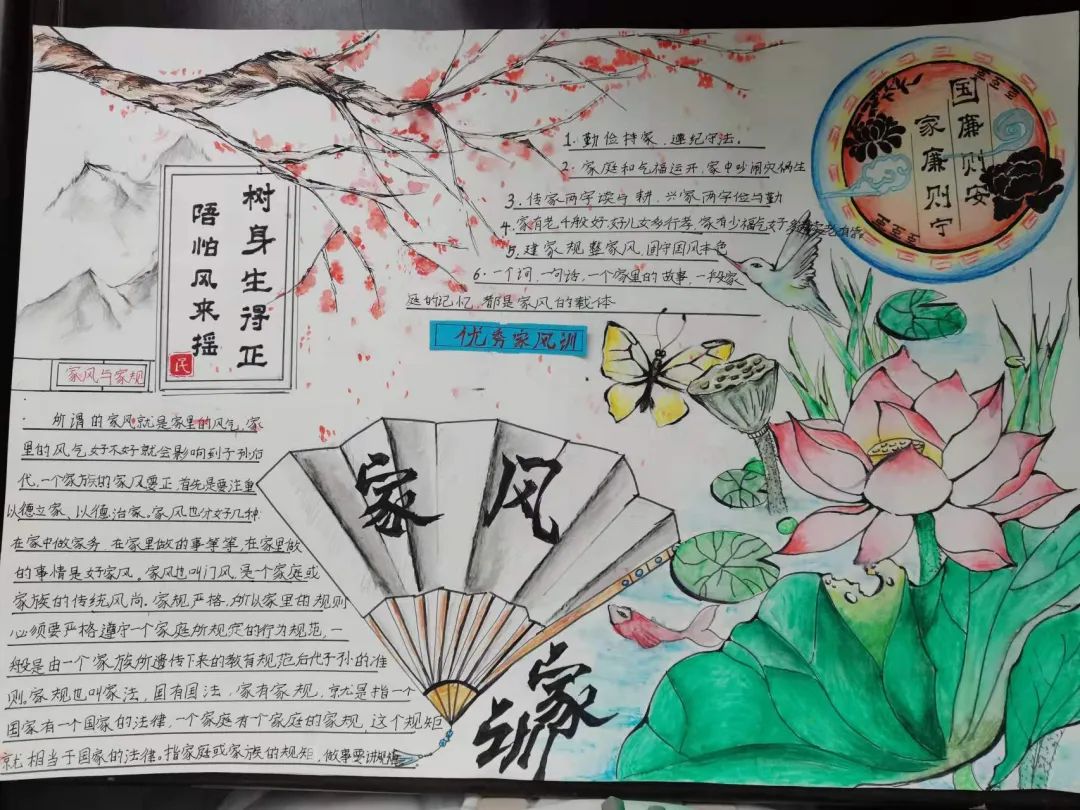 树身生得正
唔怕风来摇
民
家风与家规
所谓的家风就是家里的风气,家
里的风气好不好就会影响到子孙后
代,一个家族的家风要正,首先是要注重
以德立家、以德治家。家风也分好几种
在家中做家务,在家里做的事等等,在家里做
的事情是好家风。家风也叫门风,是一个家庭或
家族的传统风尚。家规严格,所以家里的规则
必须要严格遵守一个家庭所规定的行为规范,一
般是由一个家族所遗传下来的教育规范后代子孙的准
则。家规也叫家法,国有国法,家有家规,就是指一个
国家有一个国家的法律,一个家庭有个家庭的家规,这个规矩
就相当于国家的法律。指家庭或家族的规矩,做事要讲规矩
1.勤俭持家、遵纪守法。
2.家庭和气福运开,家中吵闹灾祸生
3.传家两字读与耕,兴家两字俭与勤
4.家有老千般好,好儿女多行孝,家有少福气
5.建家规整家风,固守国风本色
6.一个词,一句话,一个家里的故事,一段家
庭的记忆,都是家风的载体
优秀家风训
国廉则安
家廉则宁
家风
家训